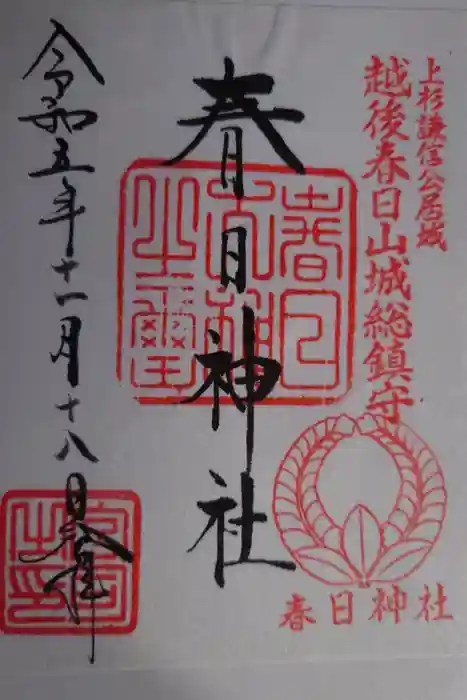 上杉謙信公居城
越後春日山城総鎮守
春日神社
春日神社
令和五年十一月十八日奉拝